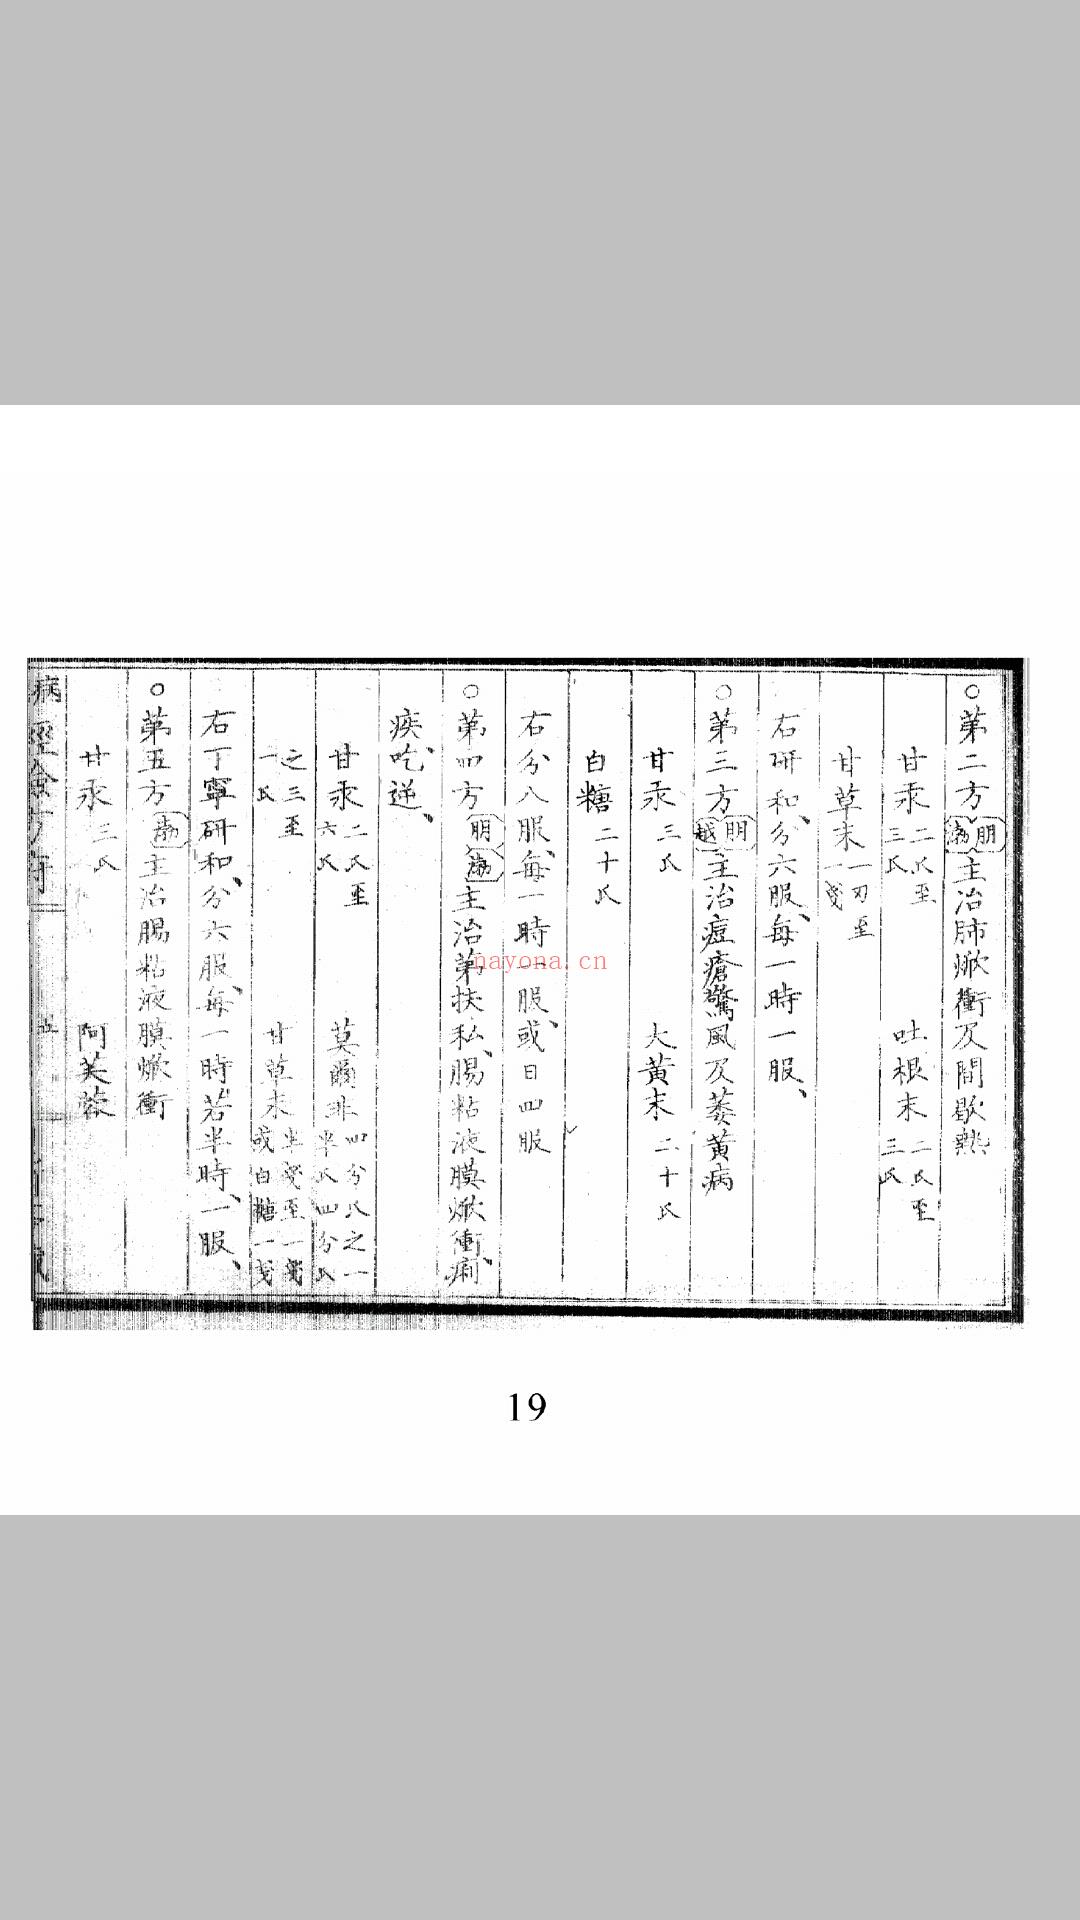 ○第二方 朋 渤 主治肺焮衝及間歇熱
甘汞 二氏至三氏 吐根末 二氏至三氏
甘草末 一刃至一戔
右研和、分六服、每一時一服、
○第三方 朋 越 主治痘瘡驚風及萎黃病
甘汞 三氏 大黃末 二十氏
白糖 二十氏
右分八服、每一時一服、或日四服
○第四方 朋 渤 主治第扶私、腸粘液膜焮衝、痢
疾吃逆、
甘汞 二氏至六氏 莫爾非 四分氏之一 半氏四分氏
之三至一氏 甘草末 半戔至一戔 或白糖一戔
右丁寧研和、分六服、每一時若半時、一服、
○第五方 渤 主治腸粘液膜焮衝
甘汞 三氏 阿芙蓉
病 方
五
nayona.cn
19